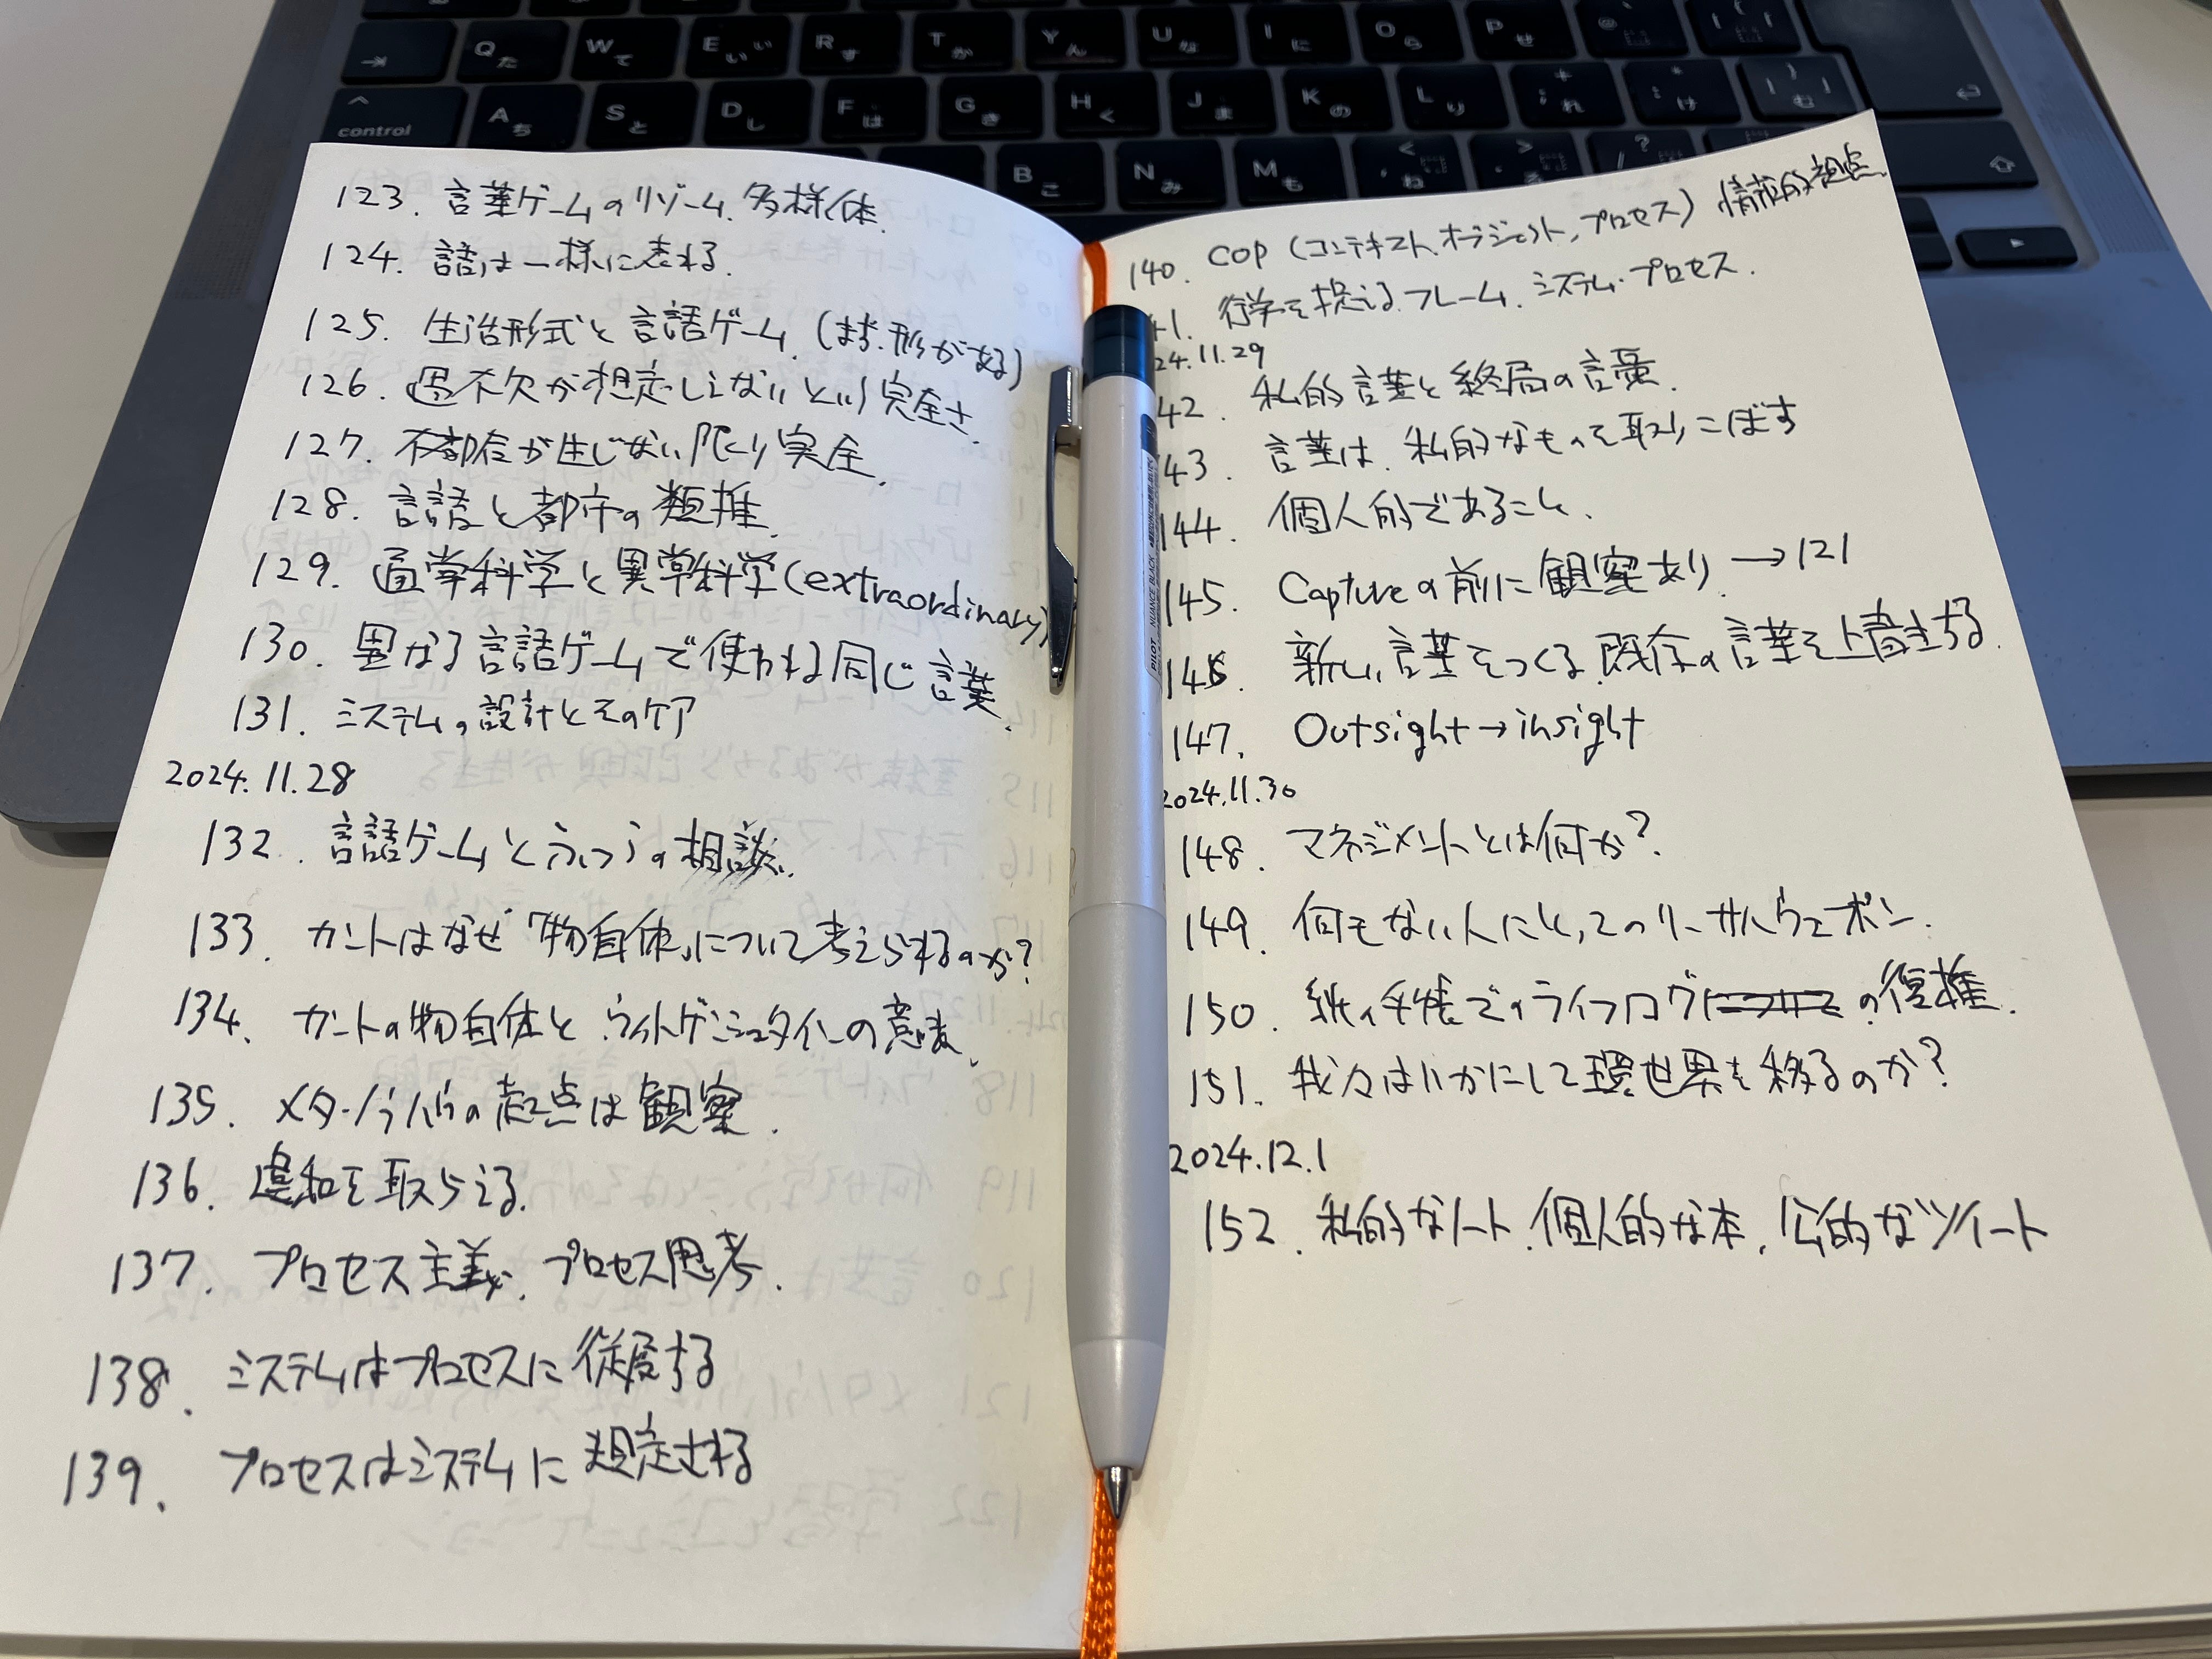 Q た
W て
E い ぃ
R す
T か
Y ん
U な
I に
O ら
P せ
control
A ち
S と
D し
F は
G き
H く
J ま
K の
L り
れ
け
む
B こ
N み
M も
ね
123. 言葉ゲームのリゾーム、多様体.
124. 語は一様に表れる.
125. 生活形式と言語ゲーム.(まず、形がある)
126. 過不欠が想定しえないという完全さ.
127. 不都合が生じない限り完全.
128. 言語と都市の類推.
129. 通常科学と異常科学(extraordinary)
130. 異なる言語ゲームで使われる同じ言葉.
131. システムの設計とそのケア
2024.11.28
132. 言語ゲームとふつうの相談.
133. カントはなぜ「物自体」について考えられるのか?
134. カントの物自体とウィトゲンシュタインの意味.
135. メタ・ノウハウの起点は観察.
136. 違和を取らえる.
137. プロセス主義、プロセス思考.
138. システムはプロセスに従属する
139. プロセスはシステムに規定される
140. COP (コンテキスト、オブジェクト、プロセス) 情報的視点.
41. 行学を捉えるフレーム、システム・プロセス.
24.11.29
42. 私的言葉と終局の言葉.
43. 言葉は、私的なものを取りこぼす
144. 個人的であること.
145. Captureの前に観察あり → 121
146. 新しい言葉をつくる、既存の言葉を上書きする.
147. Outsight→insight
2024.11.30
148. マネジメントとは何か?
149. 何もない人にとってのリーサルウェポン.
150. 紙の手帳でのライフログの復権.
151. 我々はいかにして環世界を移るのか?
2024.12.1
152. 私的なノート、個人的な本、公的なツイート
PILOT NUANCE BLACK